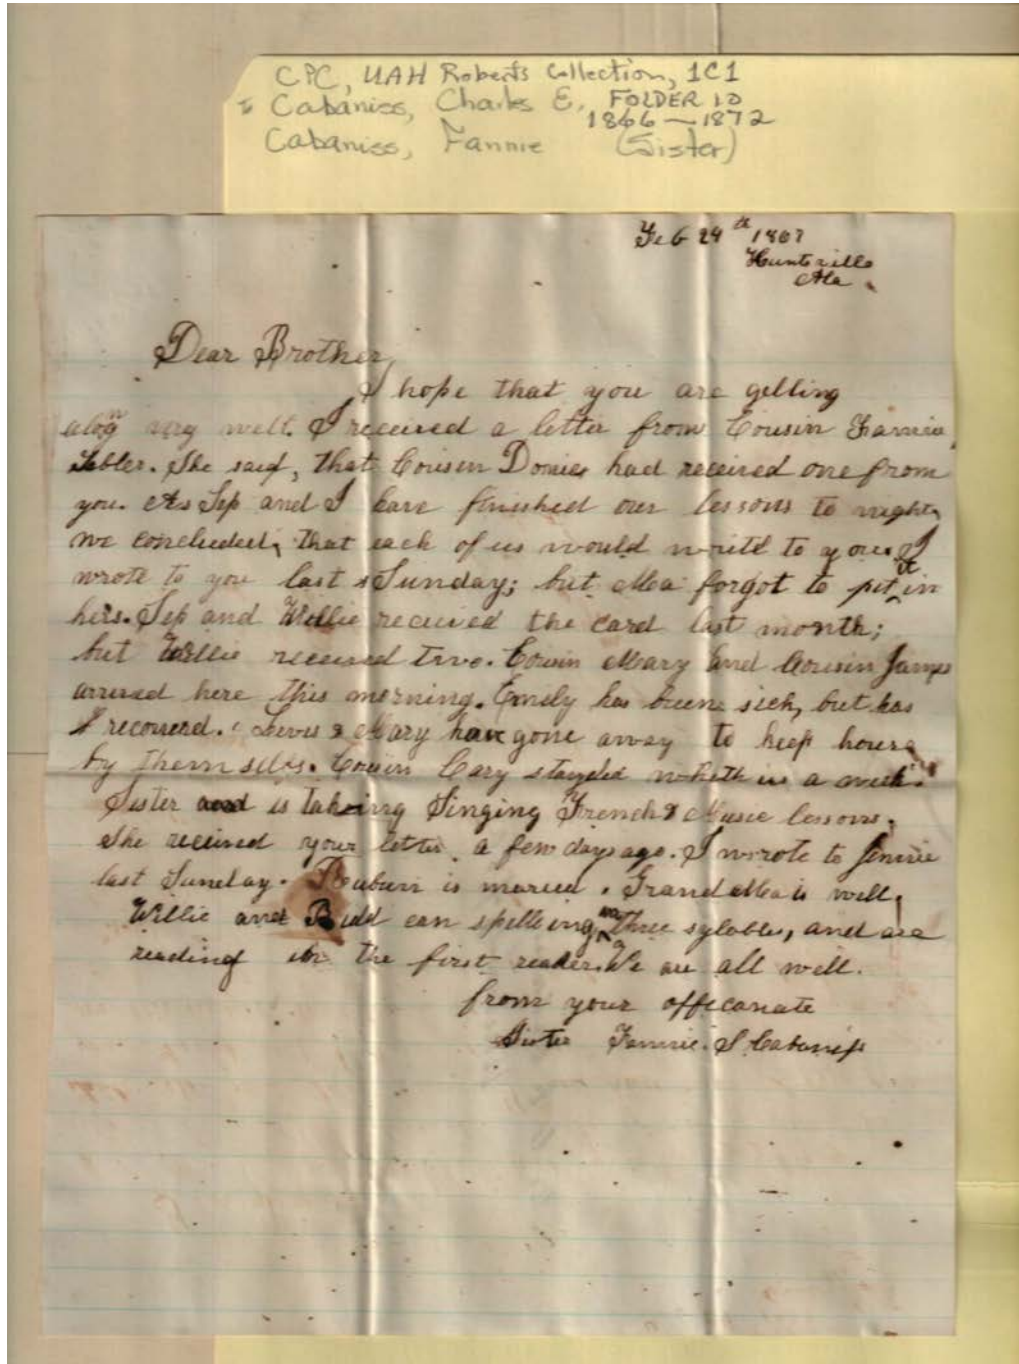 CPC, UAH Roberts Collection, 1C1
to Cabaniss, Charles E, FOLDER 10
1866 — 1872
Cabaniss, Fannie (Sister)
Feb 24th 1867
Huntsville
Ala
Dear Brother,
I hope that you are getting
alog n very well. I received a letter from Cousin Fannie
. She said, that Cousin Donies had received one from
you. As Sep and I have finished our lessons to night,
we concluded, that each of us would write to you. I
wrote to you last Sunday; but Ma forgot to put it in
hers. Sep and Willie received the card last month;
but Willie received two. Cousin Mary and Cousin James
arrived here this morning. Emily has been sick, but has
recoverd. Lewis & Mary have gone away to keep house
by themselvs. Cousin Cary stayed with us a week.
Sister is taking Singing French & Music lessons.
She received your letter a few days ago. I wrote to Jennie
last Sunday. Reuben is maried. Grand Ma is well.
Willie and Budd can spell ing three sylables, and are
reading in the first reader. We are all well.
from your affecanate
Sister Fannie. S Cabaniss